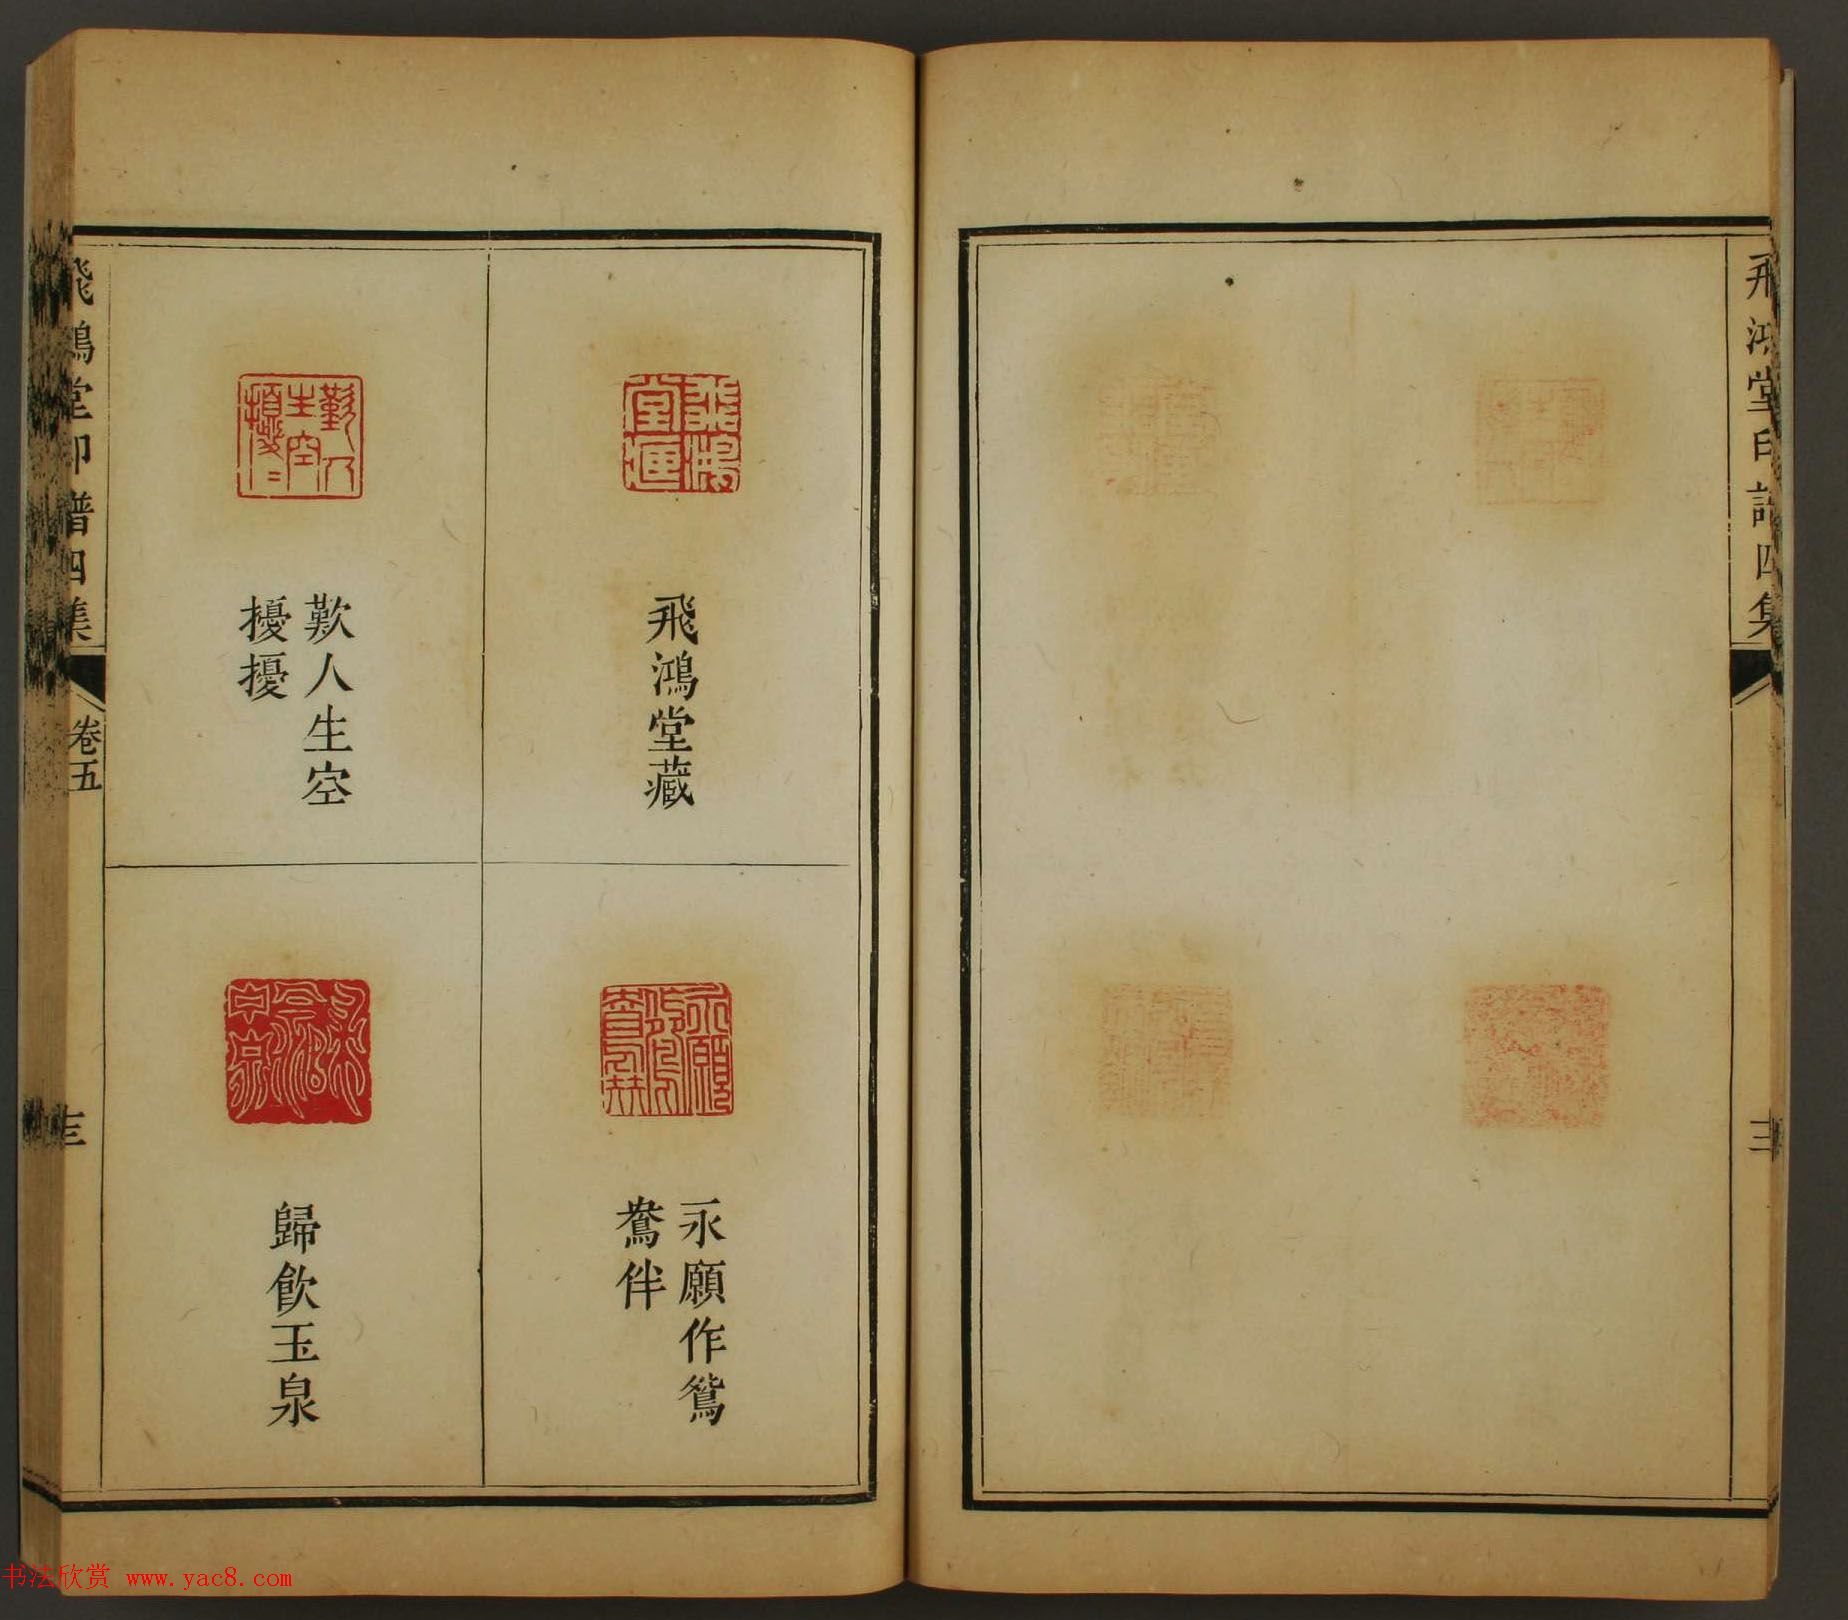 飛鴻堂印譜四集
三
飛鴻堂藏
歎人生空
擾擾
永願作鴛
鴦伴
歸飲玉泉
飛鴻堂印譜四集
卷五
三
书法欣赏 www.yac8.com